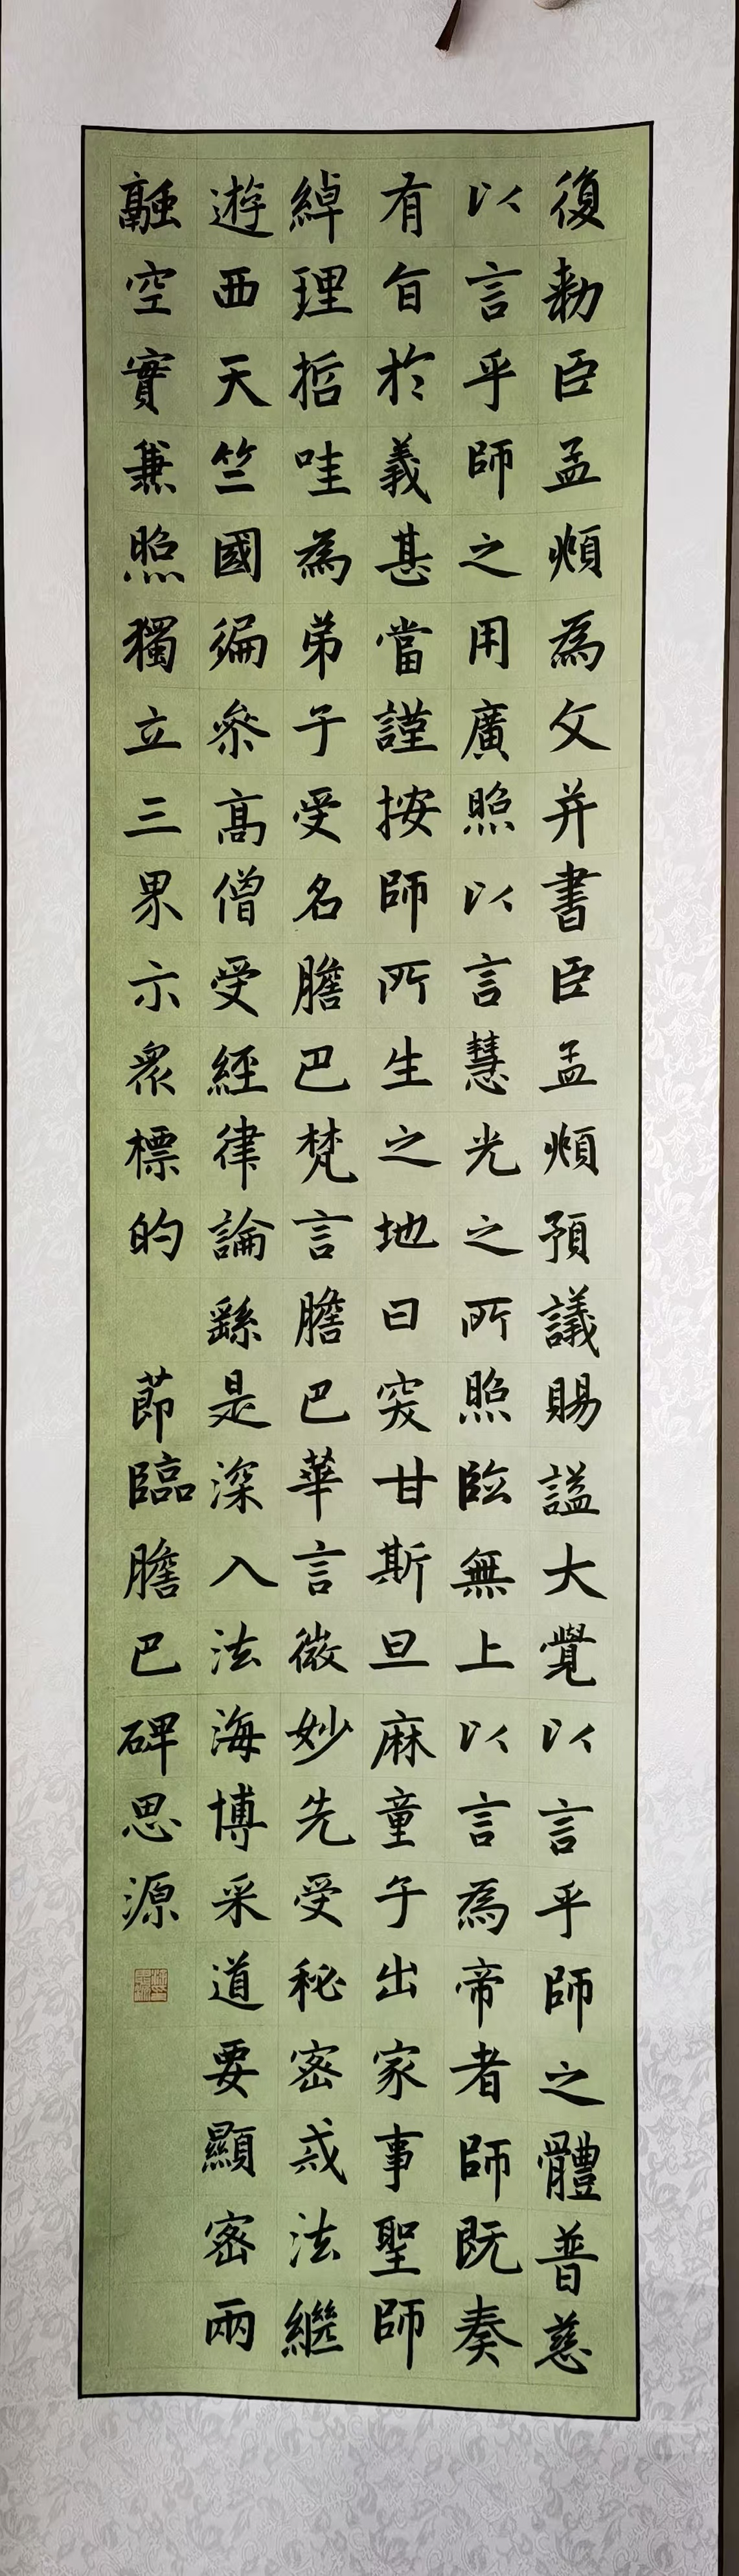 復勑臣孟頫為文并書臣孟頫預議賜謚大覺以言乎師之體普慈
以言乎師之用廣照以言慧光之所照臨無上以言為帝者師既奏
有旨於義甚當謹按師所生之地曰突甘斯旦麻童子出家事聖師
綽理哲哇為弟子受名膽巴梵言膽巴華言微妙先受秘密戒法繼
遊西天竺國徧叅高僧受經律論繇是深入法海博采道要顯密兩
融空實兼照獨立三界示衆標的 節臨膽巴碑思源